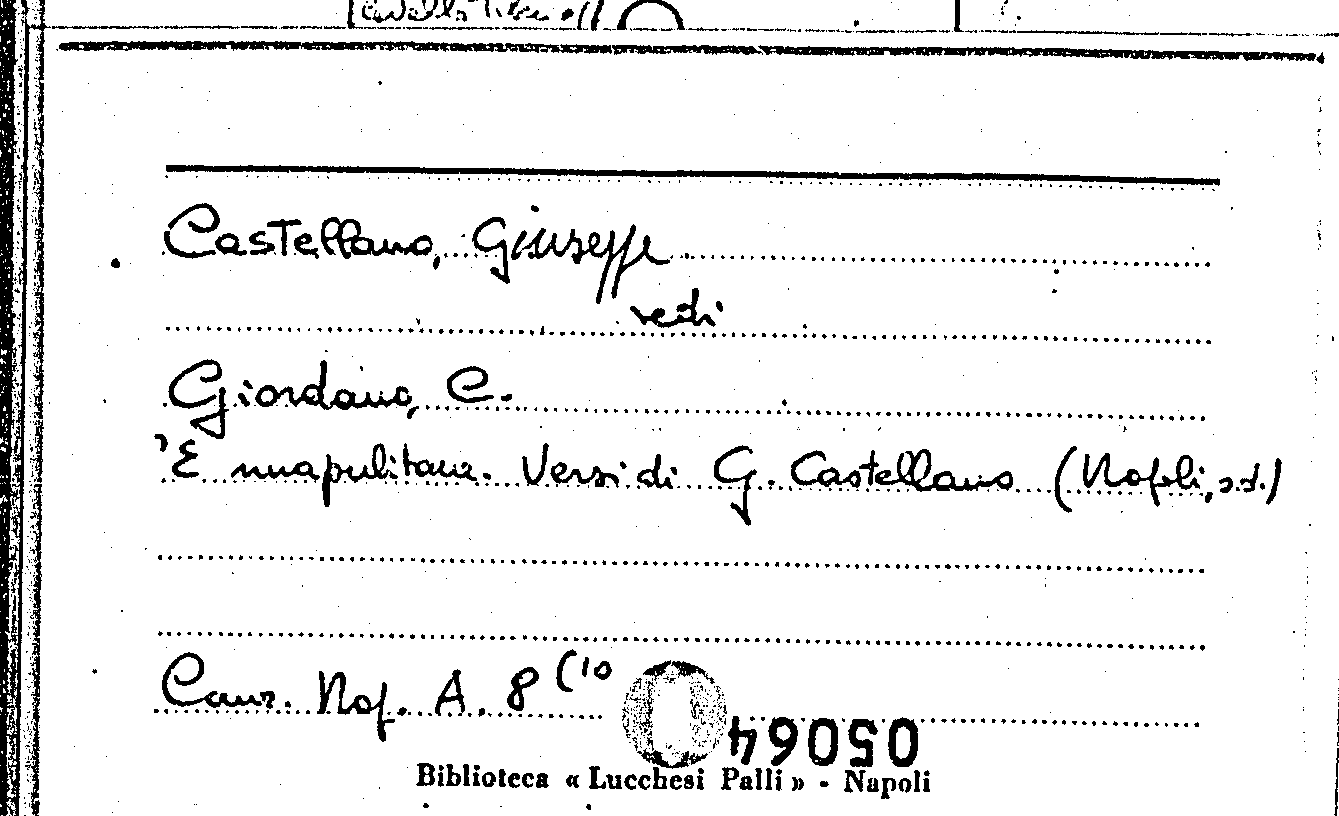 Castellano, Giuseppe
vedi
Giordano, C.
'E nnapulitane. Versi di G. Castellano (Napoli, s.d.)
Canz. Nap. A. 8 (10
05064
Biblioteca « Lucchesi Palli » - Napoli